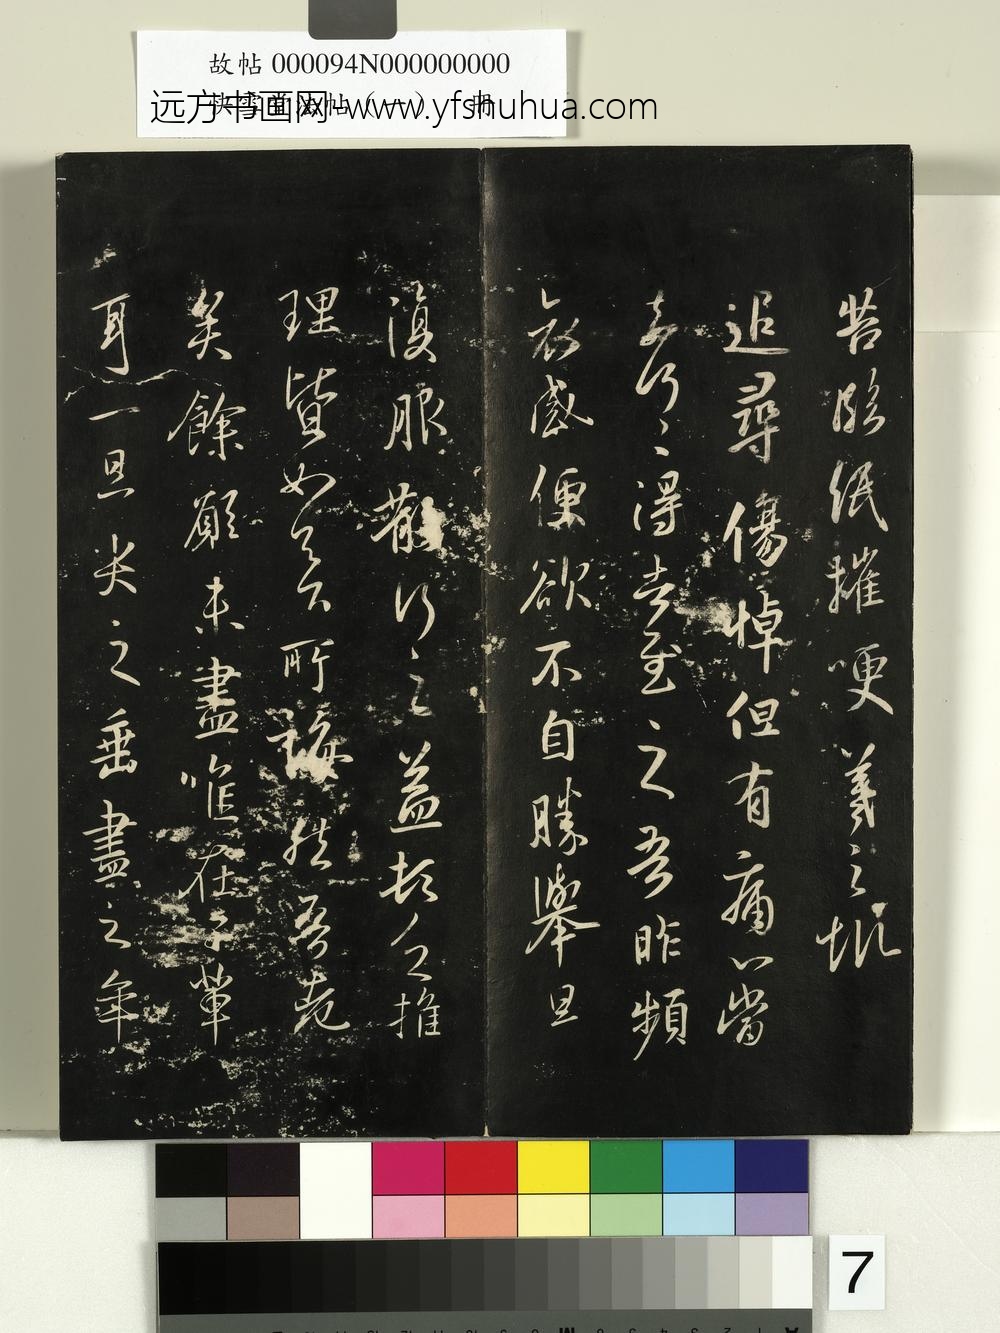 故帖 000094N000000000
远方书画网 www.yfshuhua.com
苦臨紙摧哽羲之
追尋傷悼但有痛心當
奈何〻得告慰之吾昨頻
哀感便欲不自勝舉旦
復服散行之益頓乏推
理皆如足下所誨然吾老
矣餘願未盡唯在子輩
耳一旦哭之垂盡之年
7